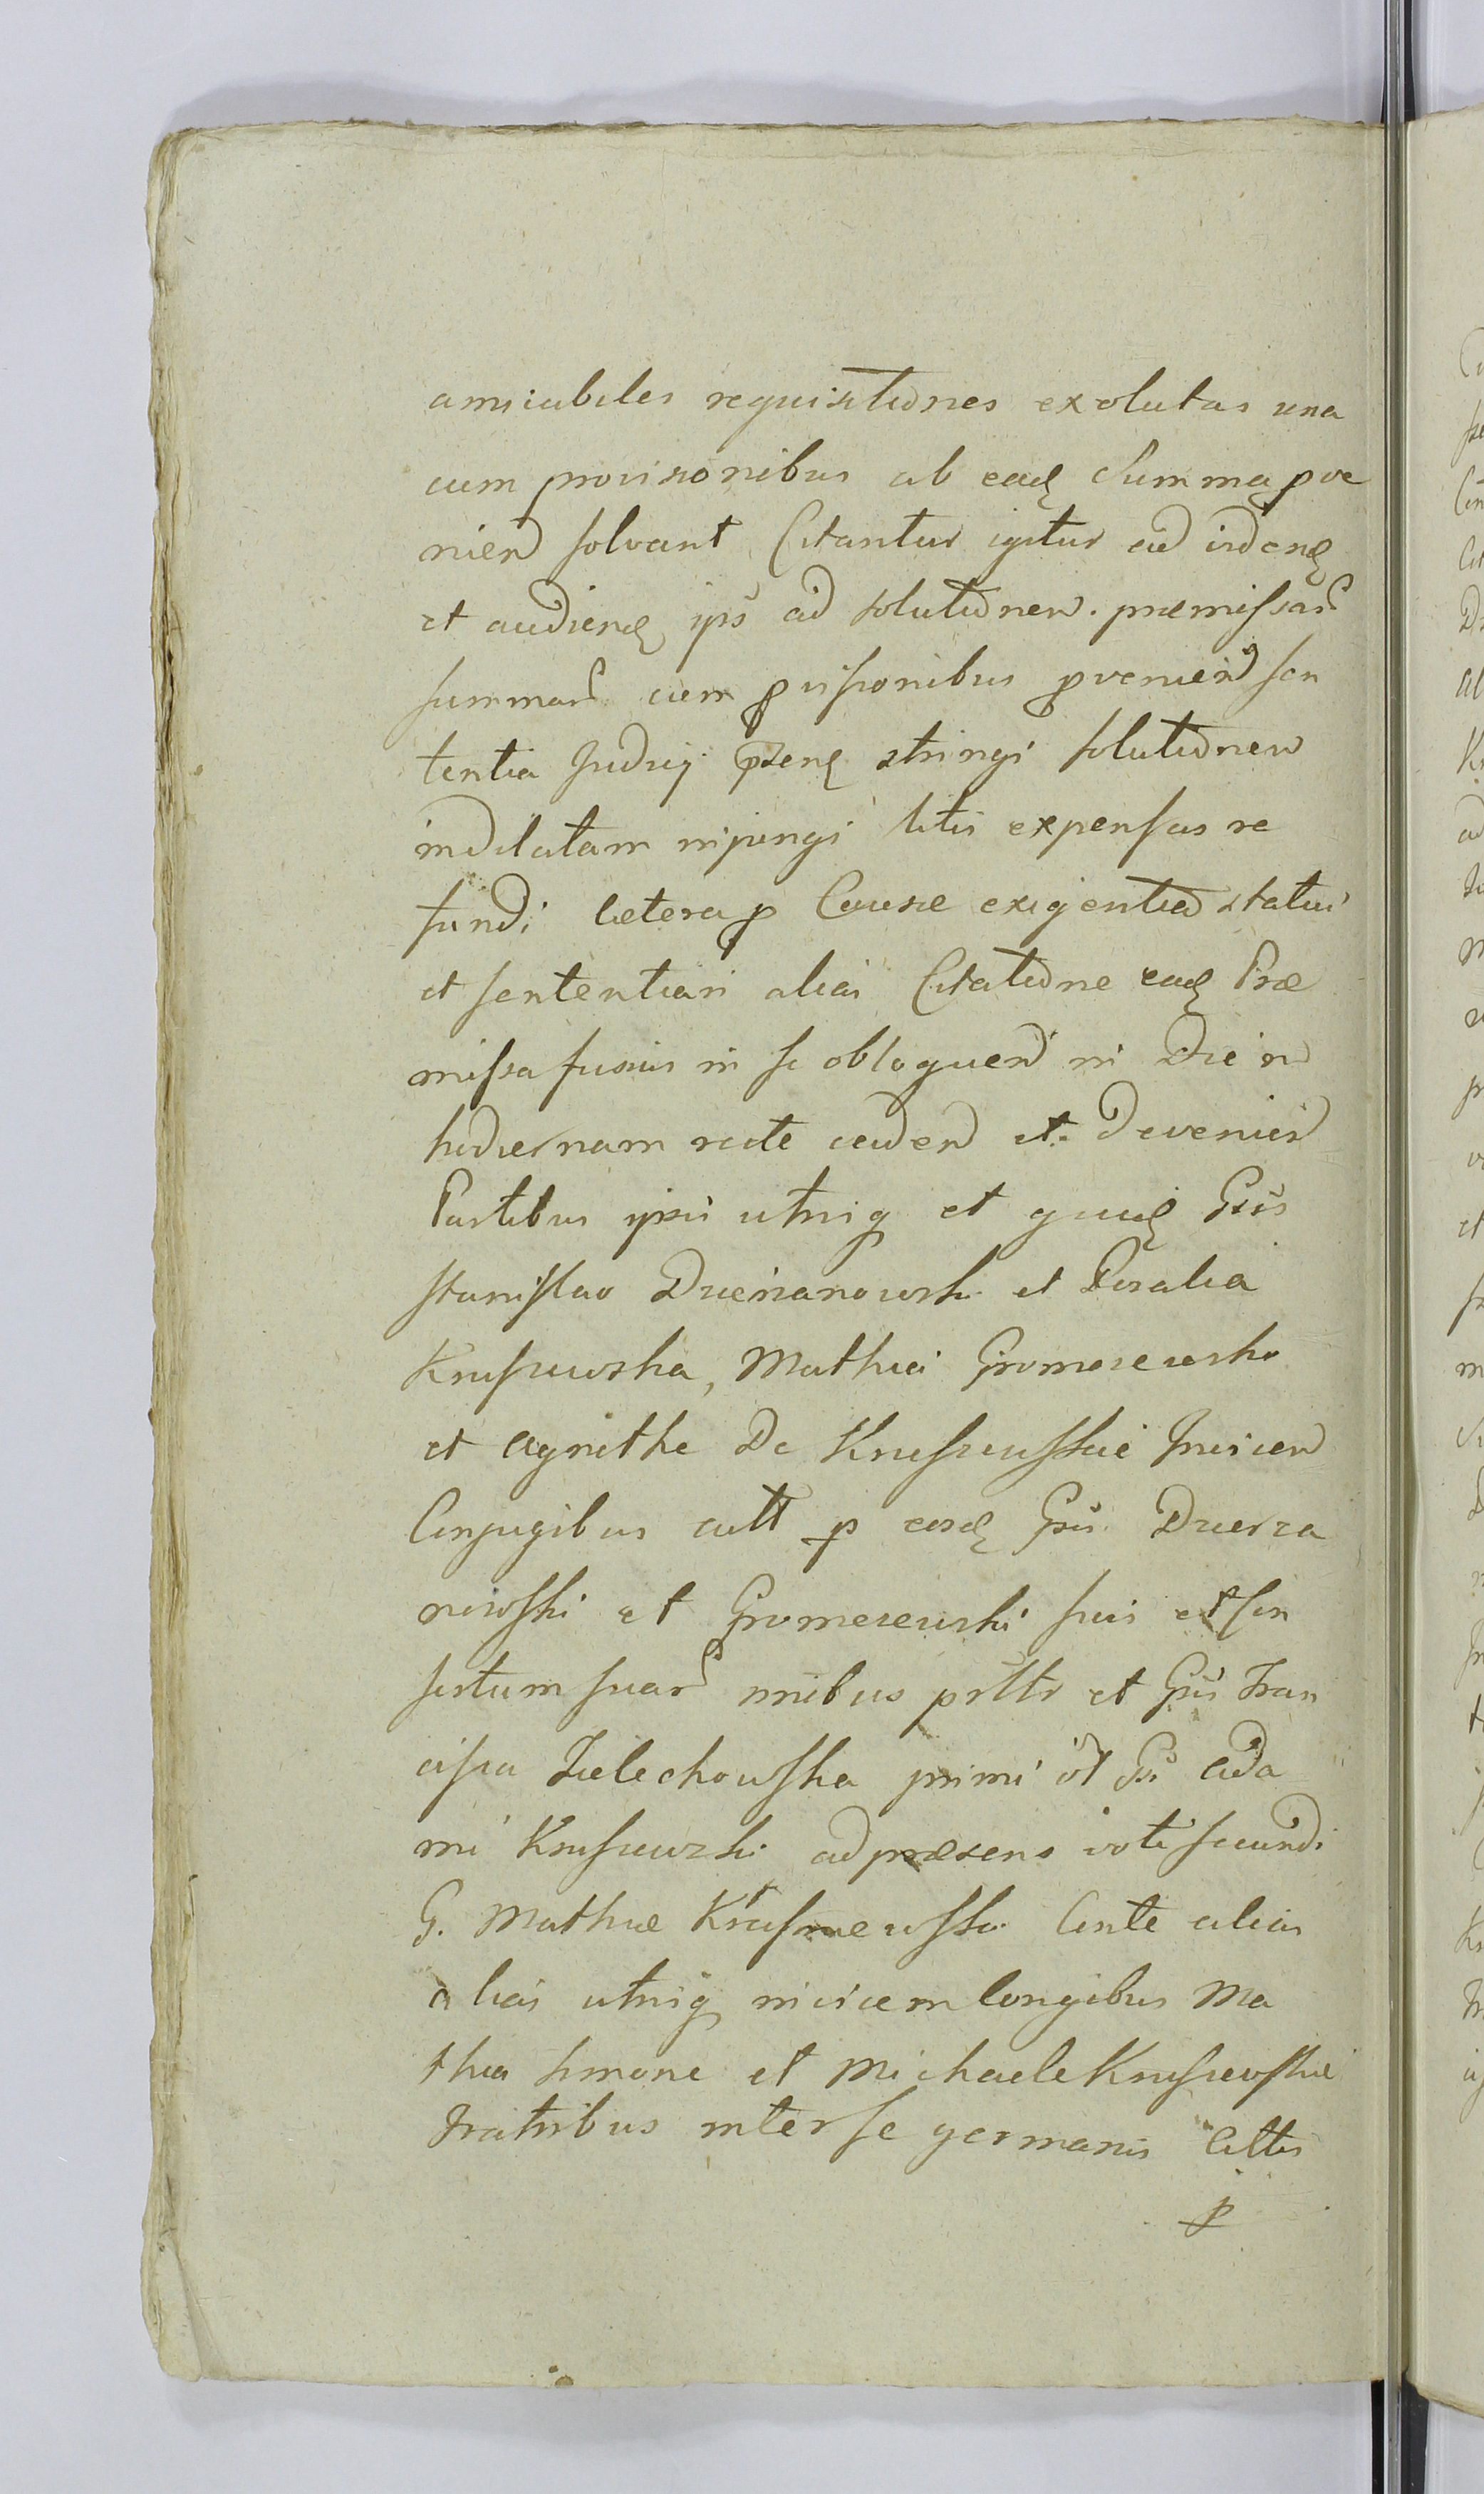 amicabiles requisitiones exolutas una
cum provisionibus ab eadę Summa pve
niend solvant Citantur igitur ad videndę
et audiendę ips ad solutionem. præmissar
summar cum pvisionibus pveniend sen
tentia Judicÿ pzenę stringi solutionem
indilatam injungi litis expensas re
fundi cætera p Causæ exigentia statui
et sententiari alias Citatione eadę Præ
missa fusius in se obloquend in Diem
hodiernam rite caden et devenien
Partibus ipsis utrinq et quidę Gsis
Stanislao Dzierzanowski et Rosalia
Krusiewska, Mathia Gromezewsko
et Agnethe De Krusiewsskie Invicem
Conjugibus citt p eosdę Gsis Dzierza
nowski et Gromezewski suis et con
sortum suar nnibus psttr et Gsis Fran
cisca Zielechowska primi vot Gsi Ada
mi Krusiewski ad præsens voti secundi
G. Mathiæ Krasniewsski Conte alias
alias utrinq invicem Congibus Ma
thia Simone et Michaele Krusiewskie
Fratribus inter se germanis Cittis
p